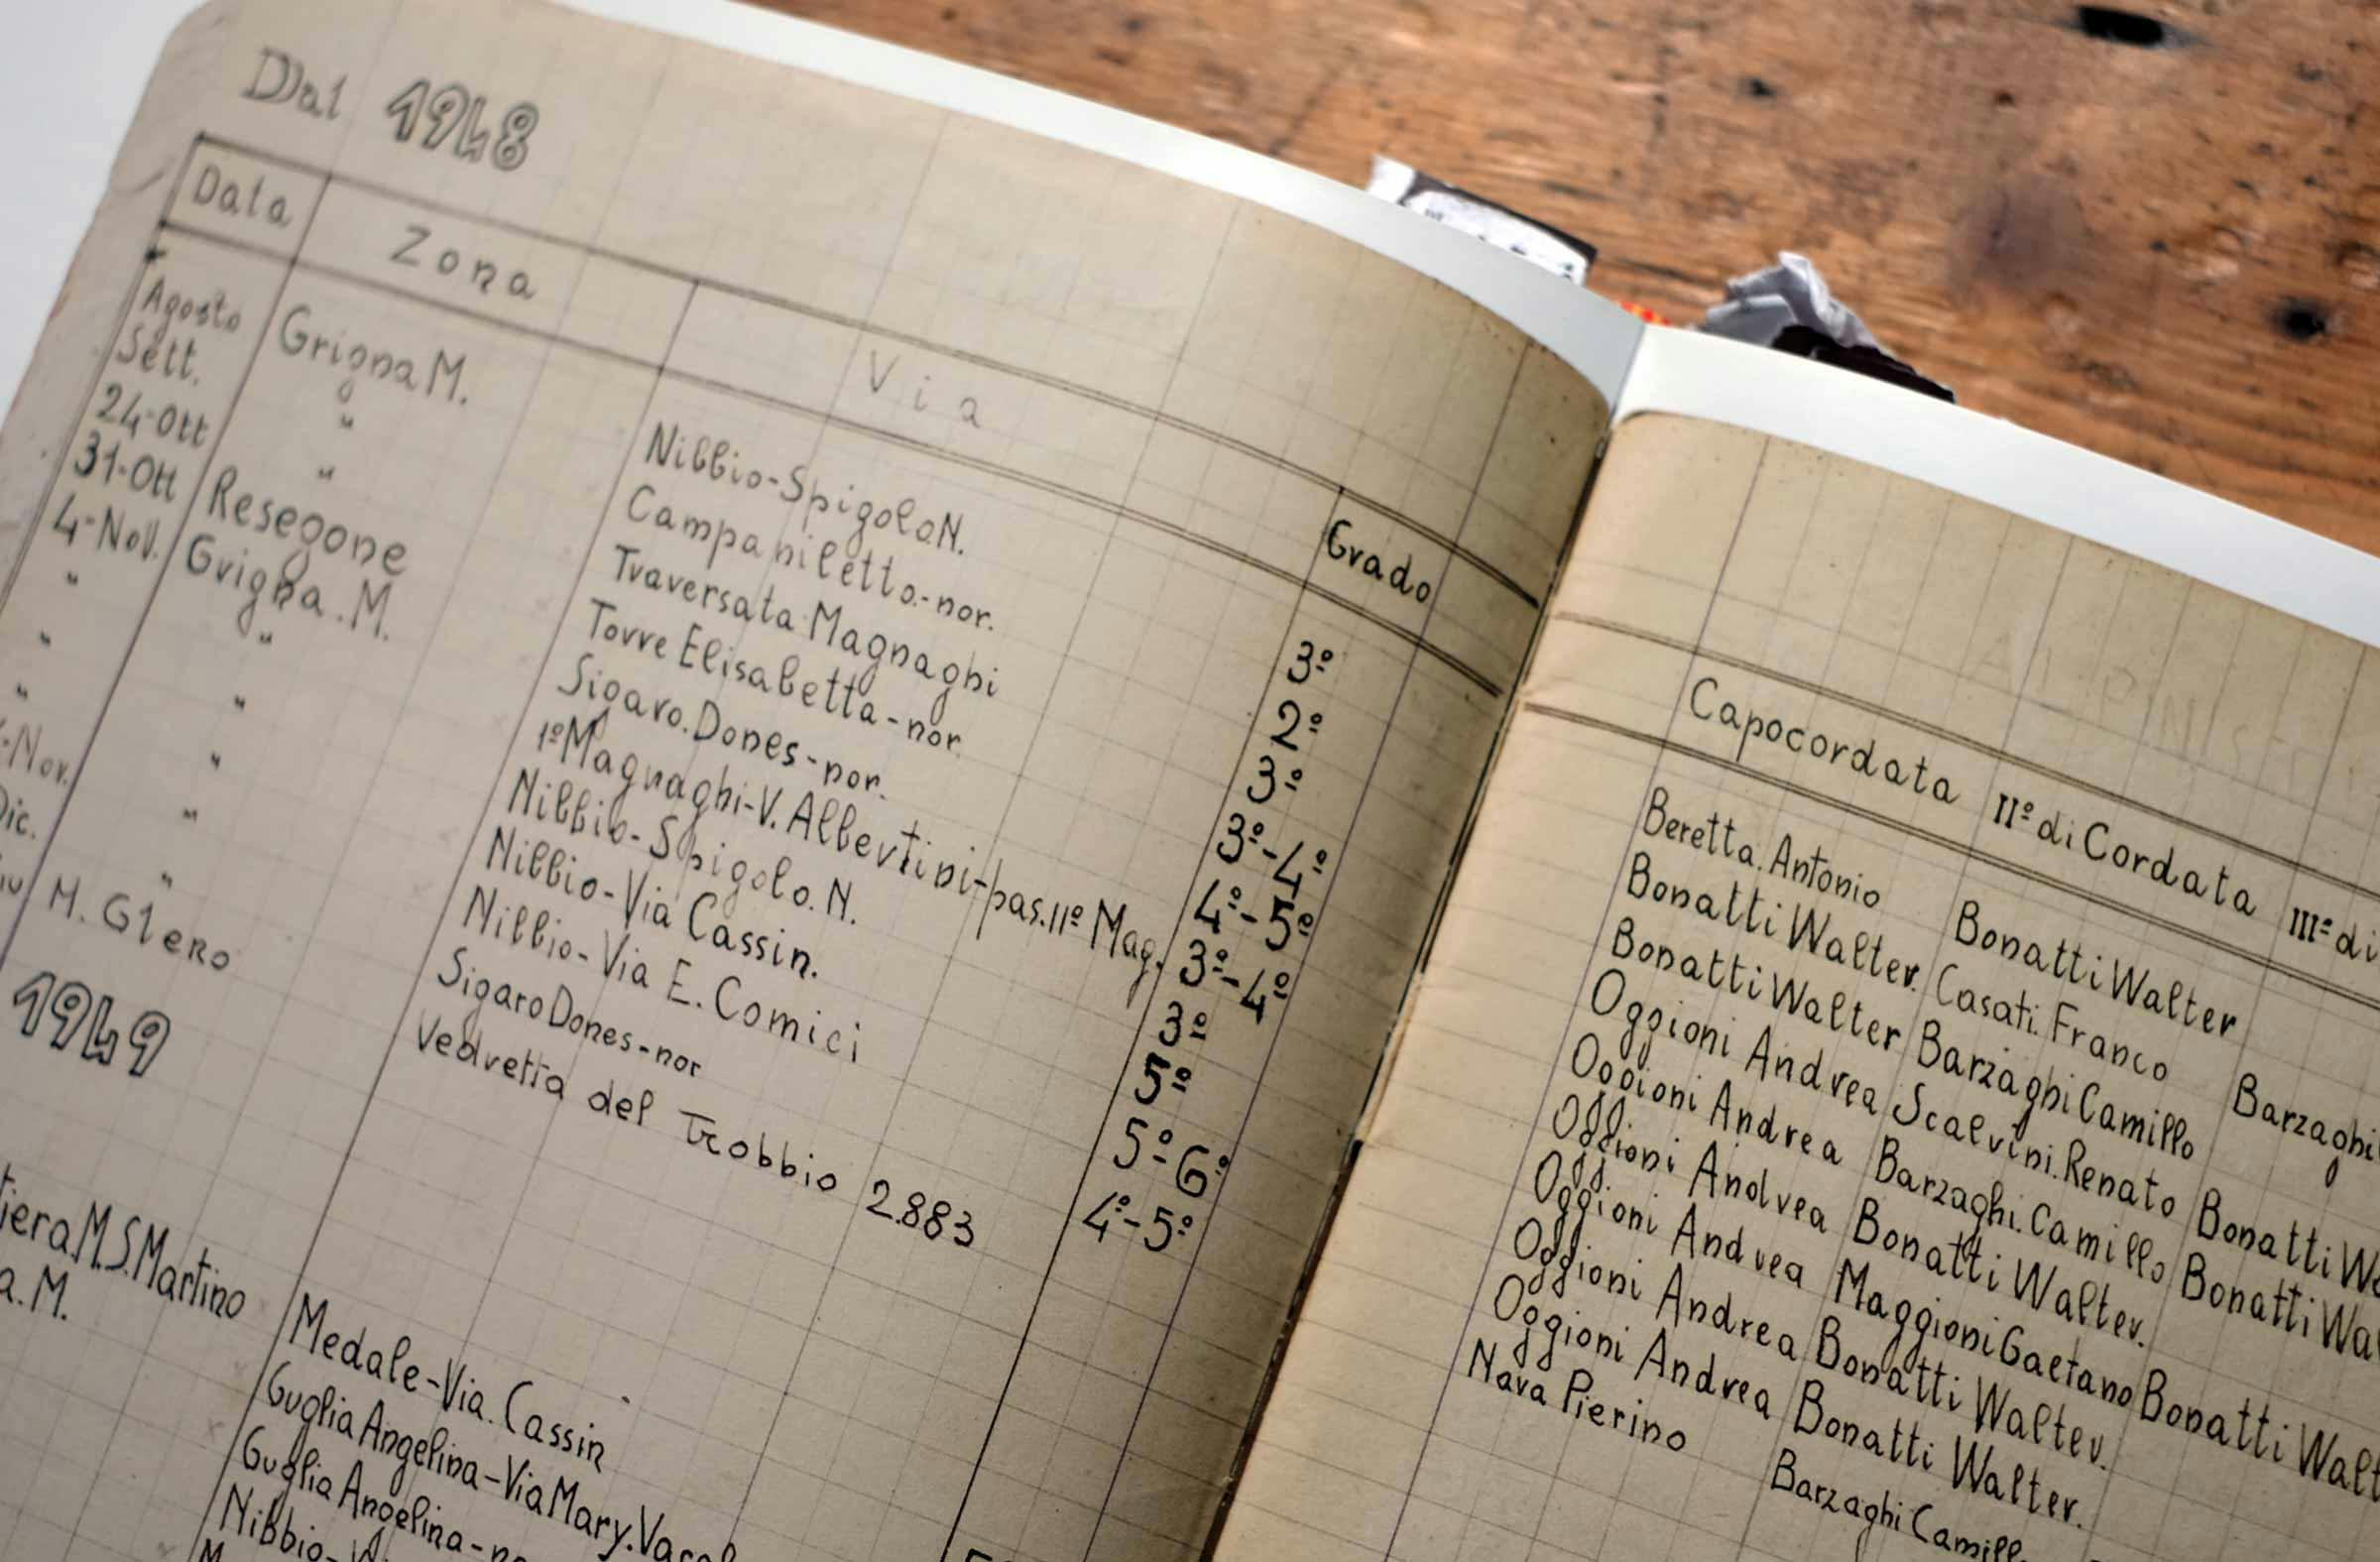 Dal 1948
Data Zona Via Grado
Agosto Grigna M. Nibbio-Spigolo N. 3º
Sett. " Campaniletto.-nor. 2º
24-Ott " Traversata Magnaghi 3º
31-Ott Resegone Torre Elisabetta-nor. 3º-4º
4-Nov. Grigna.M. Sigaro.Dones-nor. 4º-5º
" " 1ºMagnaghi-V.Albertini-pas.IIº Mag. 3º-4º
" " Nibbio-Spigolo.N. 3º
" " Nibbio-Via Cassin. 5º
-Nov. " Nibbio-Via E.Comici 5º-6º
Dic. " Sigaro Dones-nor 4º-5º
M. Glero Vedretta del Trobbio 2.883
1949
iera.M.S.Martino Medale-Via.Cassin
a.M. Guglia Angelina-Via Mary.Va
Guglia Angelina-n
Nibbio-
Capocordata IIº di Cordata IIIº di
Beretta.Antonio Bonatti Walter
Bonatti Walter. Casati.Franco Barzaghi
Bonatti Walter Barzaghi Camillo
Oggioni Andrea Scalvini.Renato Bonatti Wa
Oggioni Andrea Barzaghi.Camillo Bonatti Wa
Oggioni Andrea Bonatti Walter.
Oggioni Andrea Maggioni Gaetano Bonatti Walt
Oggioni Andrea Bonatti Walter.
Oggioni Andrea Bonatti Walter.
Nava Pierino Barzaghi Camill